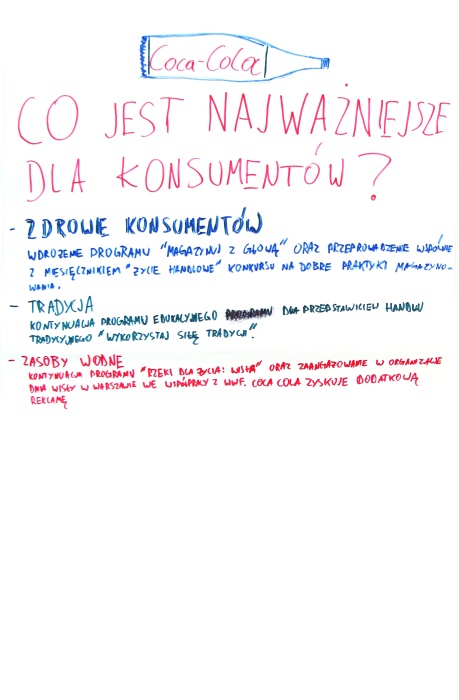 Coca-Cola
CO JEST NAJWAŻNIEJSZE
DLA KONSUMENTÓW?
- ZDROWIE KONSUMENTÓW
WDROŻENIE PROGRAMU "MAGAZYNUJ Z GŁOWĄ" ORAZ PRZEPROWADZENIE WSPÓLNIE
Z MIESIĘCZNIKIEM "ŻYCIE HANDLOWE" KONKURSU NA DOBRE PRAKTYKI MAGAZYNO-
WANIA.
- TRADYCJA
KONTYNUACJA PROGRAMU EDUKACYJNEGO DLA PRZEDSTAWICIELI HANDLU
TRADYCYJNEGO "WYKORZYSTAJ SIŁĘ TRADYCJI".
- ZASOBY WODNE
KONTYNUACJA PROGRAMU "RZEKI DLA ŻYCIA: WISŁA" ORAZ ZAANGAŻOWANIE W ORGANIZACJE
DNIA WISŁY W WARSZAWIE WE WSPÓŁPRACY Z WWF. COCA COLA ZYSKUJE DODATKOWĄ
REKLAMĘ